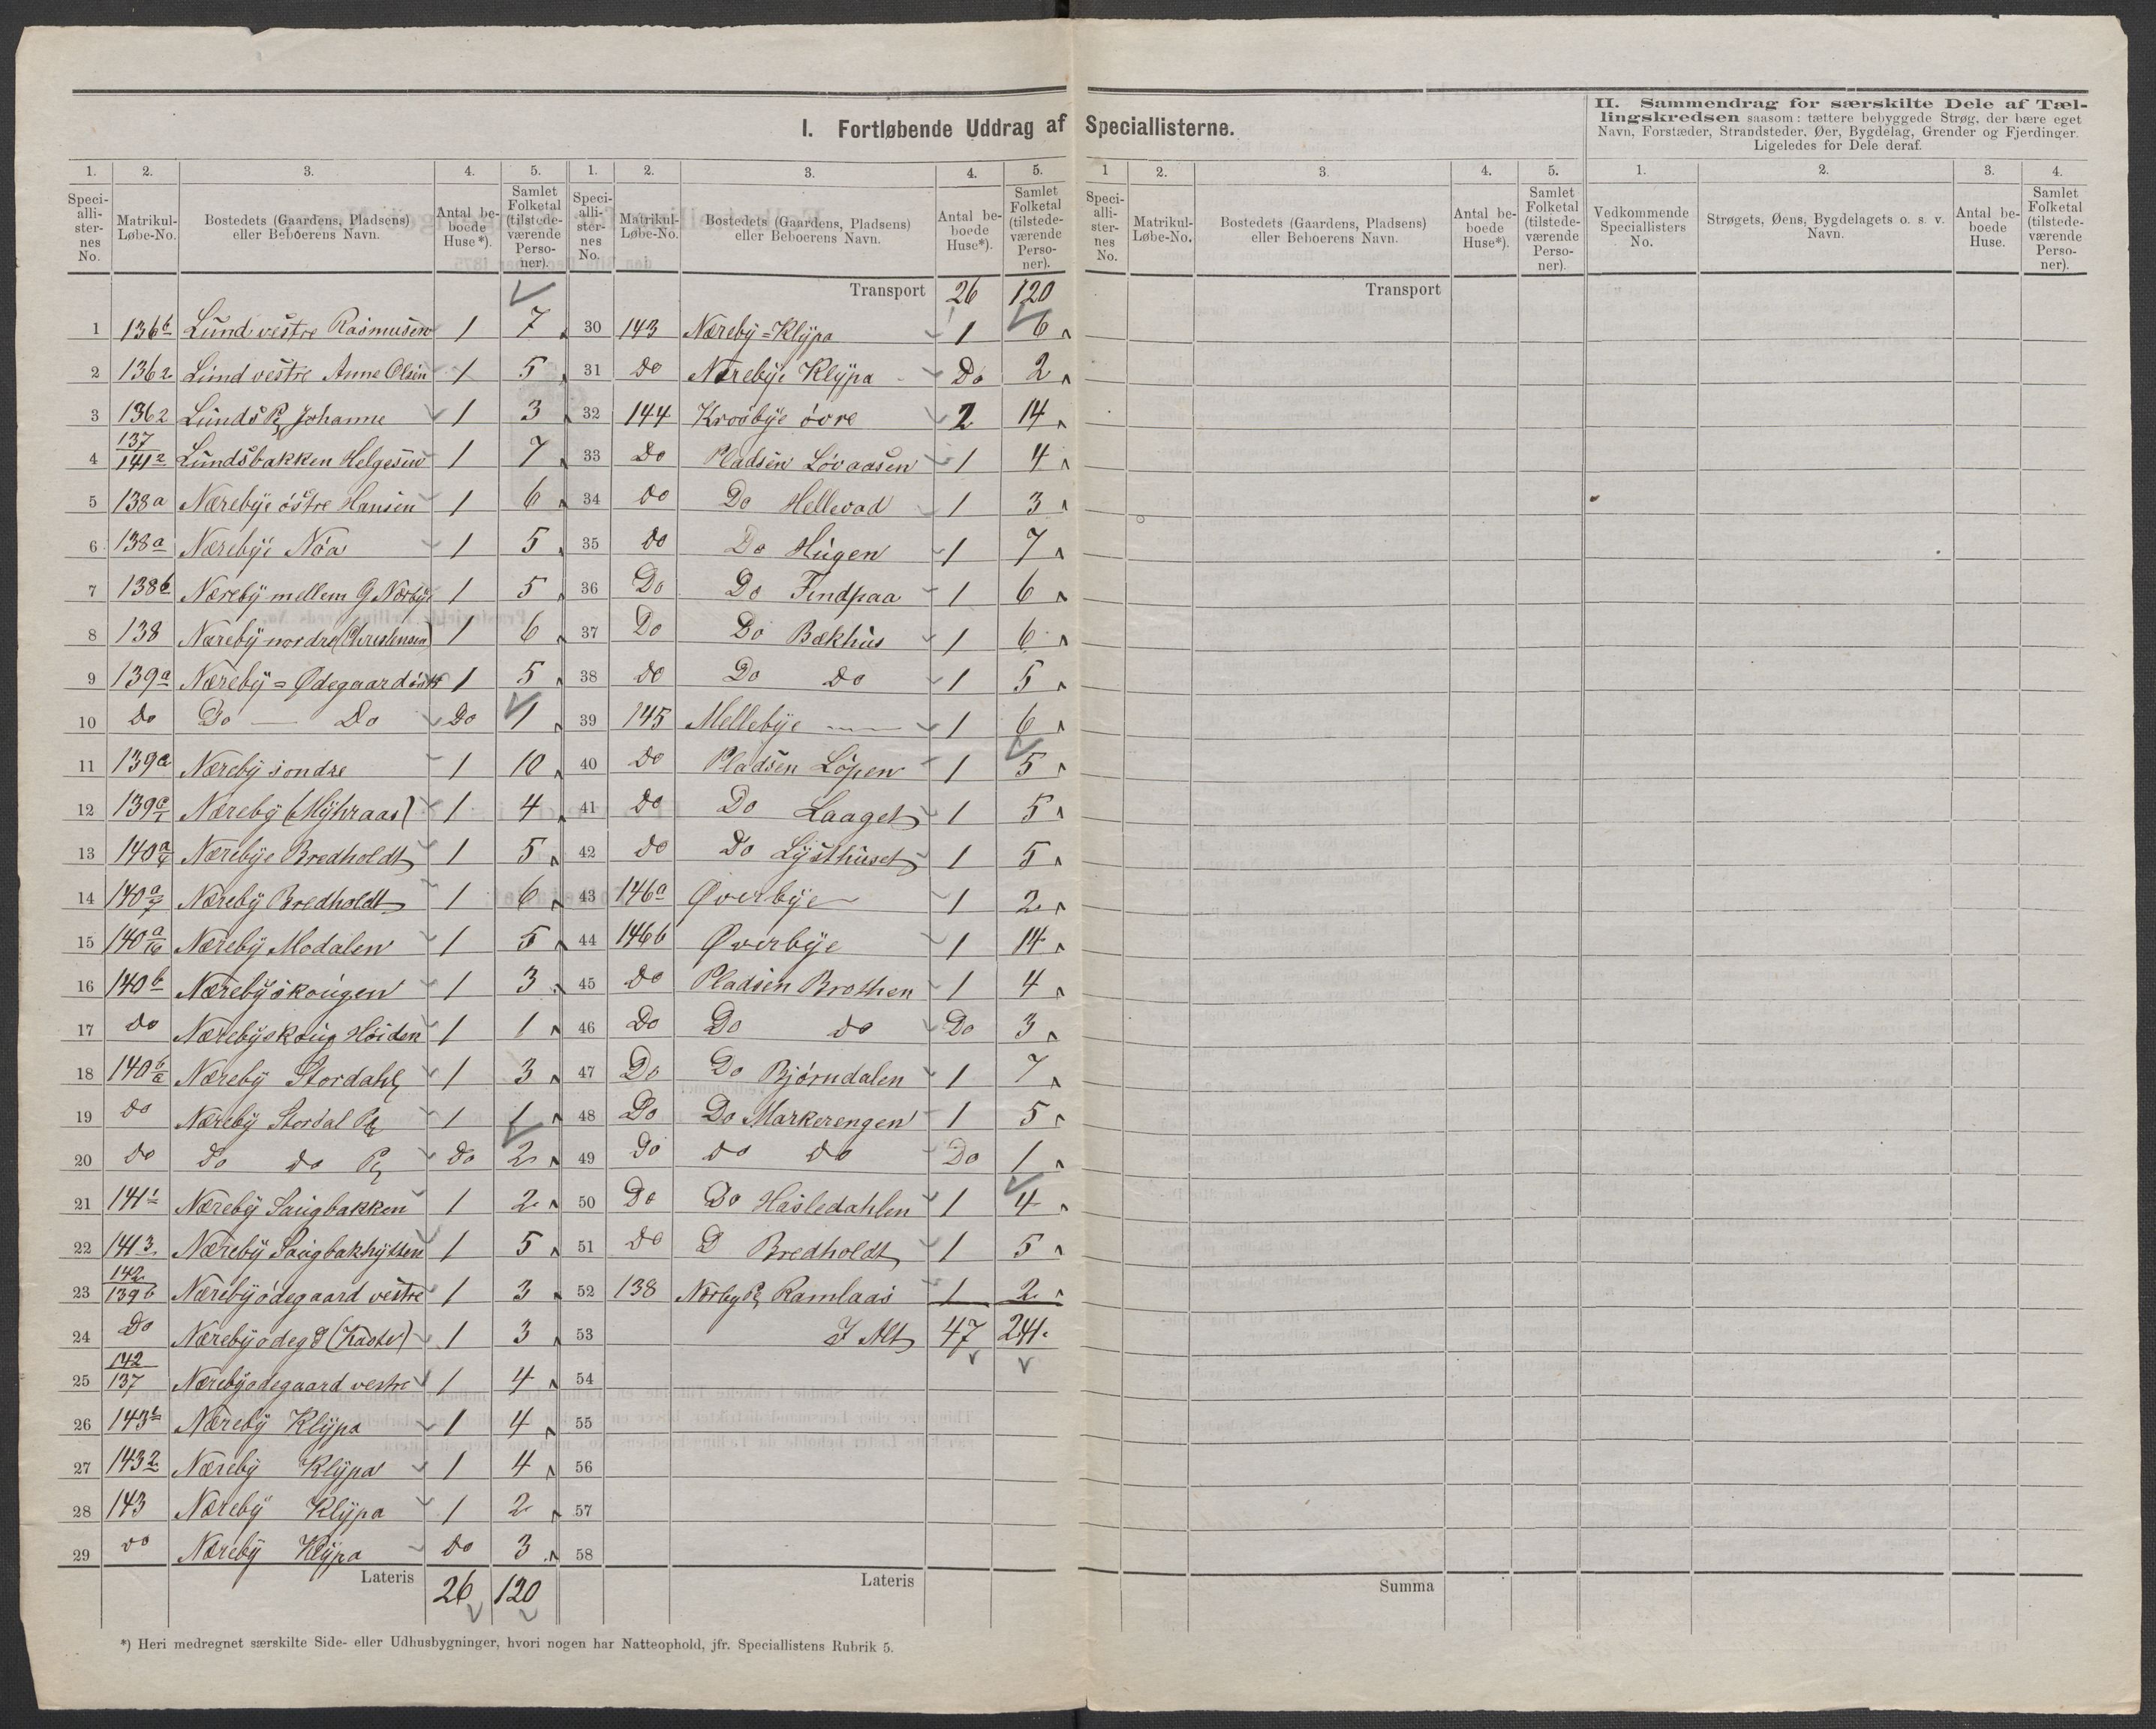 I. Fortløbende Uddrag af Speciallisterne.
II. Sammendrag for særskilte Dele af Tællingskredsen saasom: tættere bebyggede Strøg, der bære eget
Navn, Forstæder, Strandsteder, Øer, Bygdelag, Grender og Fjerdinger.
Ligeledes for Dele deraf.
1. 2. 3. 4. 5. 1. 2. 3. 4. 5.
Speciallisternes No. Matrikul-Løbe-No. Bostedets (Gaardens, Pladsens) eller Beboerens Navn. Antal beboede Huse*). Samlet Folketal (tilstedeværende Personer).
Speciallisternes No. Matrikul-Løbe-No. Bostedets (Gaardens, Pladsens) eller Beboerens Navn. Antal beboede Huse*). Samlet Folketal (tilstedeværende Personer).
1 136b Lund vestre Rasmusen 1 7
2 1362 Lund vestre Anne Olsen 1 5
3 1362 Lunds Pl Johanne 1 3
4 137/1412 Lundsbakken Helgesen 1 7
5 138a Nærebye östre Hansen 1 6
6 138a Nærebye Nöa 1 5
7 138b Næreby mellem G Nærbye 1 5
8 138 Næreby nordre (Christensen) 1 6
9 139a Næreby=Ødegaard östr 1 5
10 do Do — Do Do 1
11 139a Næreby söndre 1 10
12 139a/1 Næreby (Myhraas) 1 4
13 140a/4 Nærebye Bredholdt 1 5
14 140a/7 Næreby Bredholdt 1 6
15 140a/16 Næreby Modalen 1 5
16 140b Nærebyskougen 1 3
17 do Nærebyskoug Höiden 1 1
18 140b/a Næreby Stordahl 1 3
19 do Næreby Stordal Pl 1 1
20 do do do Pl do 2
21 141 1 Næreby Saugbakken 1 2
22 141 3 Næreby Saugbakhytten 1 5
23 142/139b Nærebyödegaard vestre 1 3
24 Do Nærebyödegd (Kaste) 1 3
25 142/137 Nærebyödegaard vestre 1 4
26 143 1 Næreby Klypa 1 4
27 143 2 Næreby Klypa 1 4
28 143 Næreby Klypa 1 2
29 do Næreby Klypa do 3
Lateris 26 120
Transport 26 120
30 143 Næreby=Klypa 1 6
31 do Nærebye Klypa Do 2
32 144 Krosbye övre 2 14
33 Do Pladsen Lövaasen 1 4
34 do Do Hellevad 1 3
35 do Do Hugen 1 7
36 Do Do Findpaa 1 6
37 Do Do Bækhus 1 6
38 do Do do 1 5
39 145 Mellebye 1 6
40 do Pladsen Löpen 1 5
41 do Do Laaget 1 5
42 do Do Lysthuset 1 5
43 146a Øverbye 1 2
44 146b Øverbye 1 14
45 do Pladsen Brothen 1 4
46 Do Do do Do 3
47 Do Do Björndalen 1 7
48 Do Do Markerengen 1 5
49 Do do do Do 1
50 Do Do Hasledahlen 1 4
51 do D Bredholdt 1 5
52 138 Nærby Pl Ramlaas 1 2
53 I Alt 47 241
54
55
56
57
58
Lateris
1 2. 3. 4. 5.
Speciallisternes No. Matrikul-Løbe-No. Bostedets (Gaardens, Pladsens) eller Beboerens Navn. Antal beboede Huse*). Samlet Folketal (tilstedeværende Personer).
Transport
Summa
1. 2. 3. 4.
Vedkommende Speciallisters No. Strøgets, Øens, Bygdelagets o. s. v. Navn. Antal beboede Huse. Samlet Folketal (tilstedeværende Personer).
*) Heri medregnet særskilte Side- eller Udhusbygninger, hvori nogen har Natteophold, jfr. Speciallistens Rubrik 5.